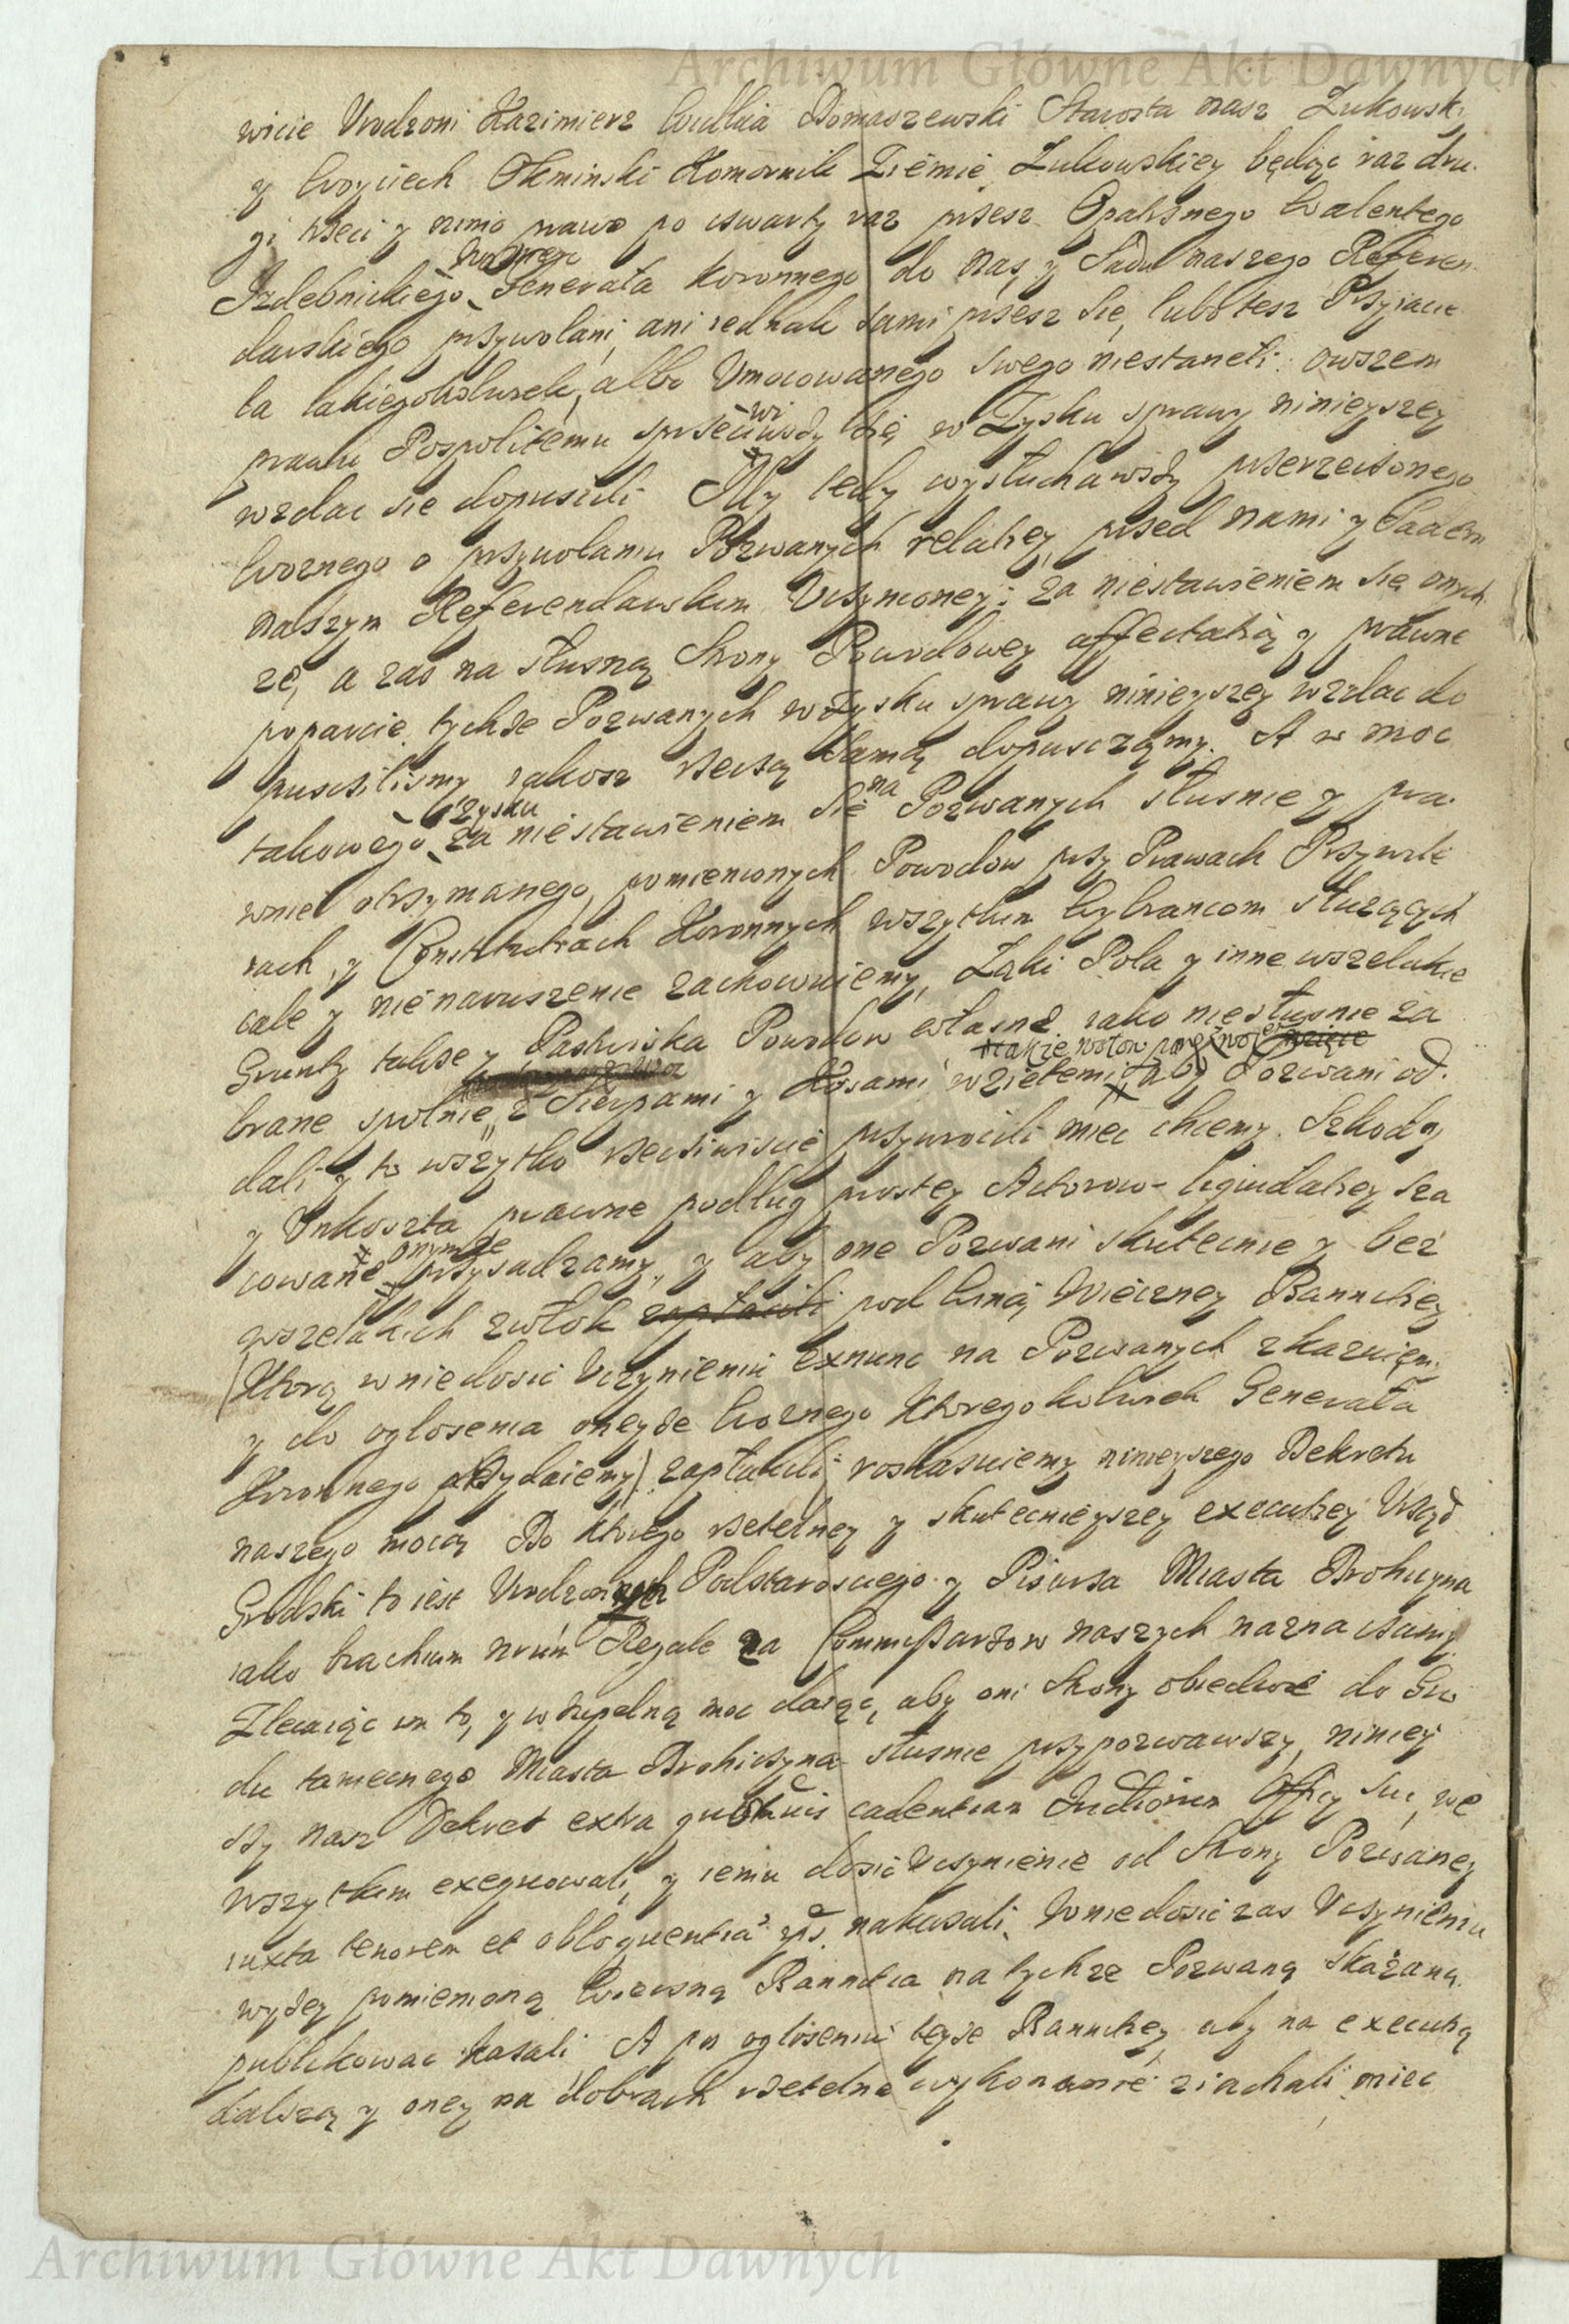 Archiwum Główne Akt Dawnych
wicie Urodzoni Kazimierz Domaszewski Starosta nasz Łukowski
y Woyciech Okninski Komornik Ziemie Łukowskiey będąc raz dru
gi trzeci y nimo prawo po czwarty raz przesz Opatrznego Walentego
Woznego
Izdebnickiego Generała koronnego do nas y Sądu naszego Referen
darskiego przywołani, ani iednak sami przesz się, lubo tesz Przyiacie
la iakiegokolwiek, albo Umocowanego swego niestaneli: owszem
prawu Pospolitemu sprzeciwiwszy się w Zysku sprawy ninieyszey
wzdac sie dopuscili My tedy wysłuchawszy przerzeczonego
Woznego o przywołaniu Pozwanych relatiey, przed nami y Sadem
naszym Referendarskim Uczynioney; za niestawieniem się onych
ze, a zas na słuszną Strony Powodowey affectatią y prawne
poparcie tychze Pozwanych w Zysku sprawy ninieyszey wzdac do
puscilismy iakosz rzeczą samą dopusczamy. A w moc
zysku na
takowego za niestawieniem sie Pozwanych słusnie y pra
wnie otrzymanego, pomienionych Powodow przy Prawach Przywile
iach, y Constitutiach Koronnych wszytkim Wybrancom słuzących
cale y nienaruszenie zachowuiemy, Łąki Pola y inne wszelakie
Grunty takze y Pastwiska Powodow własne iako niesłusnie za
także wołow parę
brane spolnie z Sierpami y Kosami wzietemi aby Pozwani od
dali y to wszytko rzeciwiscie przywrocili miec chcemy. Szkody
y Unkoszta prawne podług prostey Actorow liquidatiey sza
onymze
cowane przysadzamy, y aby one Pozwani skutecnie y bez
wszelakich zwłok zapłacili pod winą Wieczney Bannitiey
(Ktorą w niedosic Uczynieniu exnunc na Pozwanych zkazuiem
y do ogłosenia oneyze Woznego Ktoregokolwiek Generała
Koronnego przydaiemy) zapłacili roskasuiemy ninieyszego Dekretu
naszego mocą Do ktorego rzetelney y skutecnieyszey executiey Urząd
Grodzki to iest Urodzonych Podstarosciego y Pisarza Miasta Drohiczyna
iako brachium nrum Regale za Commissarzow naszych naznaczamy
Zlecaiąc im to, y w zupelną moc daiąc, aby oni Strony obiedwie do Gro
du tamecnego Miasta Drohiczyna słusnie przypozwawszy, niniey
szy nasz Dekret extra quamvis cadentiam Officy sui, we
wszytkim exequowali, y iemu dosić Uczynienie od Strony Pozwaney
iuxta tenorem et obloquentia nakasali. W niedosic zas Uczynieniu
wyzey pomienioną Wieczną Bannitia na tychze Pozwaną skazaną
publikowac kasali A po ogłoseniu teyze Bannitiey, aby na executią
dalszą y oney na dobrach rzetelne wykonanie ziachali miec
Archiwum Główne Akt Dawnych